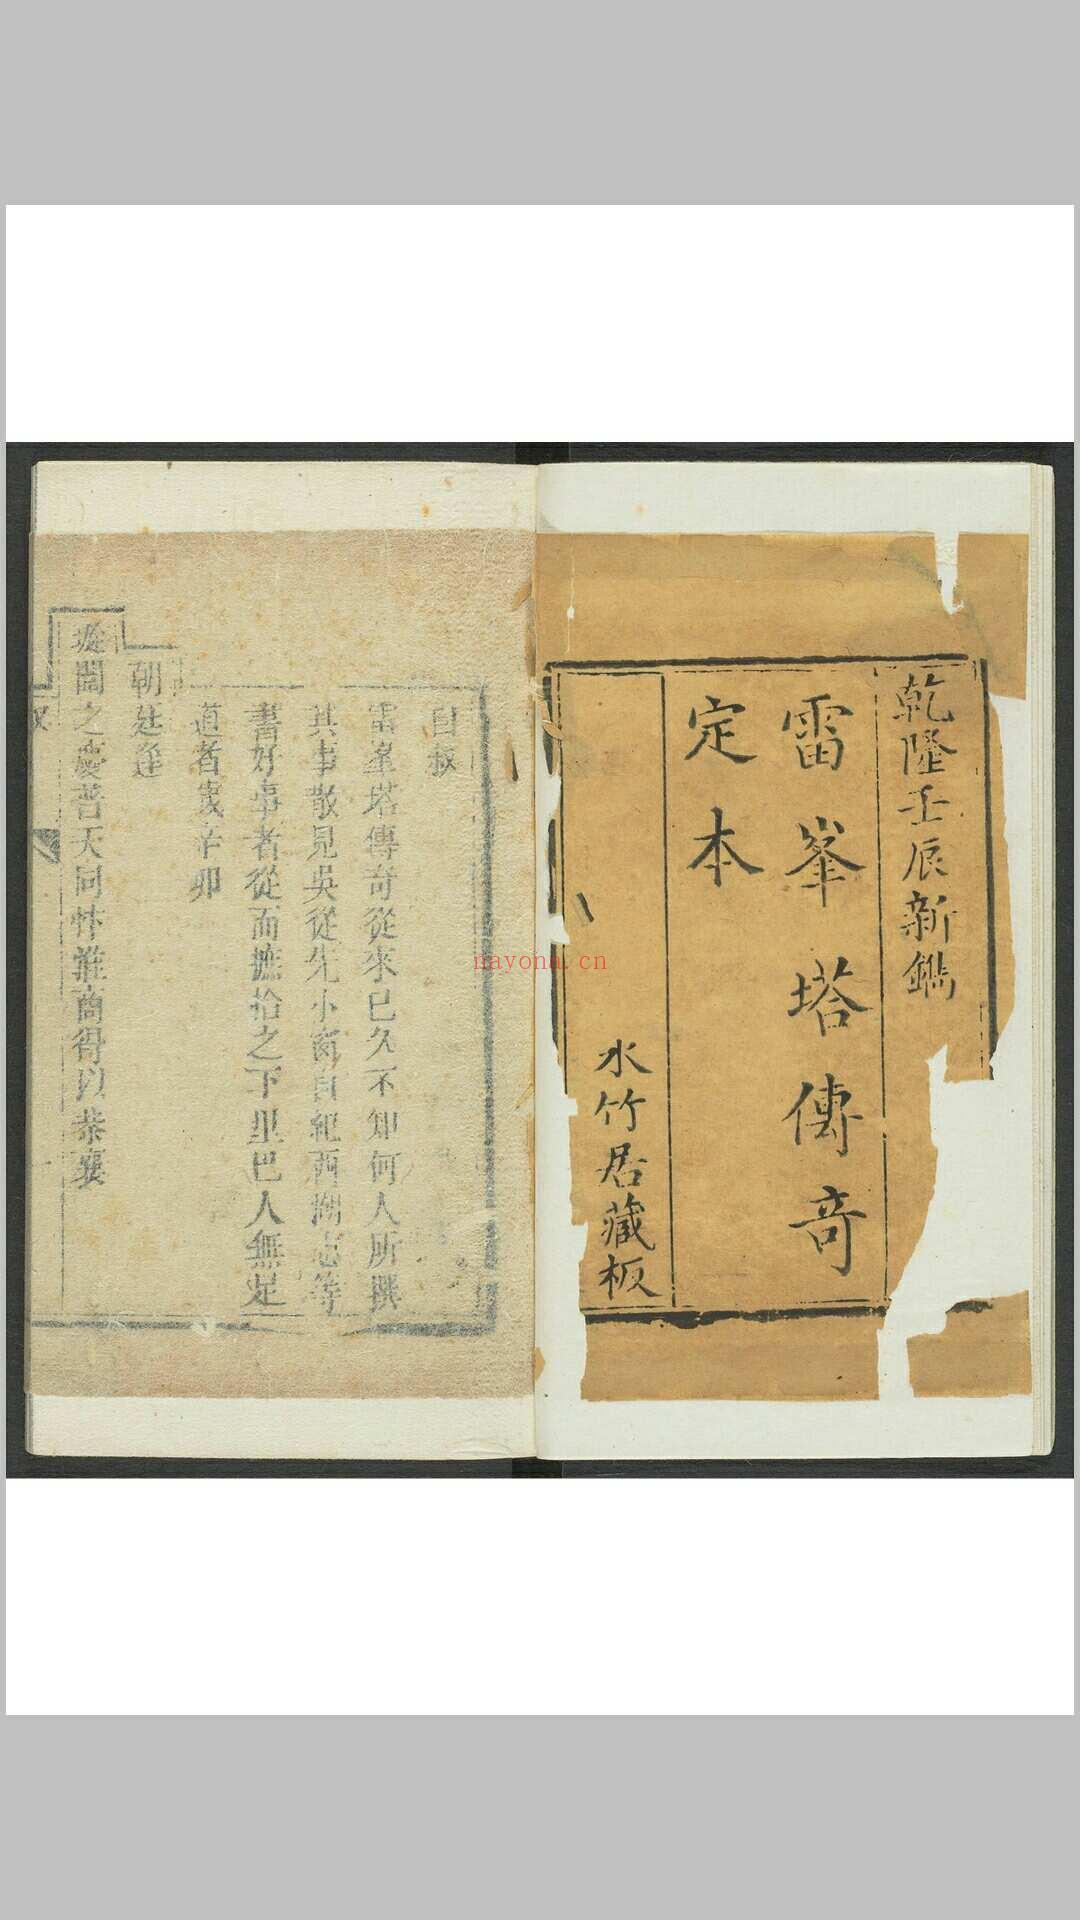 乾隆壬辰新鐫
雷峯塔傳奇
定本
水竹居藏板
自敘
雷峯塔傳奇從來已久不知何人所撰
其事散見吳從先小窗自紀西湖志等
書好事者從而摭拾之下里巴人無足
道者歲辛卯
朝廷逢
璇闈之慶普天同忭淮商得以恭襄
nayona.cn